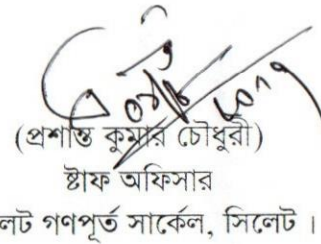 (প্রশান্ত কুমার চৌধুরী)
ষ্টাফ অফিসার
লট গণপূর্ত সার্কেল, সিলেট ।